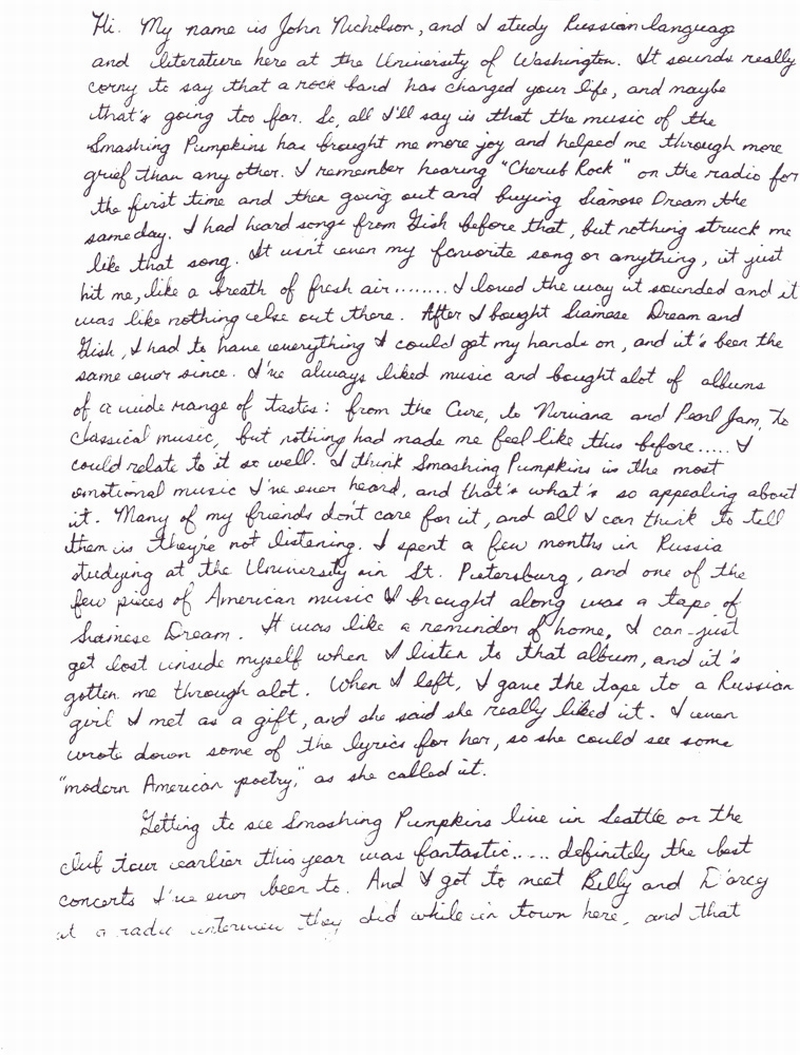 Hi. My name is John Nicholson, and I study Russian language
and literature here at the University of Washington. It sounds really
corny to say that a rock band has changed your life, and maybe
that's going too far. So, all I'll say is that the music of the
Smashing Pumpkins has brought me more joy and helped me through more
grief than any other. I remember hearing "Cherub Rock" on the radio for
the first time and then going out and buying Siamese Dream the
same day. I had heard songs from Gish before that, but nothing struck me
like that song. It isn't even my favorite song or anything, it just
hit me, like a breath of fresh air........ I loved the way it sounded and it
was like nothing else out there. After I bought Siamese Dream and
Gish, I had to have everything I could get my hands on, and it's been the
same ever since. I've always liked music and bought alot of albums
of a wide range of tastes: from the Cure, to Nirvana and Pearl Jam, to
classical music, but nothing had made me feel like this before..... I
could relate to it so well. I think Smashing Pumpkins is the most
emotional music I've ever heard, and that's what's so appealing about
it. Many of my friends don't care for it, and all I can think to tell
them is they're not listening. I spent a few months in Russia
studying at the University in St. Petersburg, and one of the
few pieces of American music I brought along was a tape of
Siamese Dream. It was like a reminder of home. I can just
get lost inside myself when I listen to that album, and it's
gotten me through alot. When I left, I gave the tape to a Russian
girl I met as a gift, and she said she really liked it. I even
wrote down some of the lyrics for her, so she could see some
"modern American poetry," as she called it.
Getting to see Smashing Pumpkins live in Seattle on the
club tour earlier this year was fantastic..... definitely the best
concerts I've ever been to. And I got to meet Billy and D'arcy
at a radio interview they did while in town here, and that